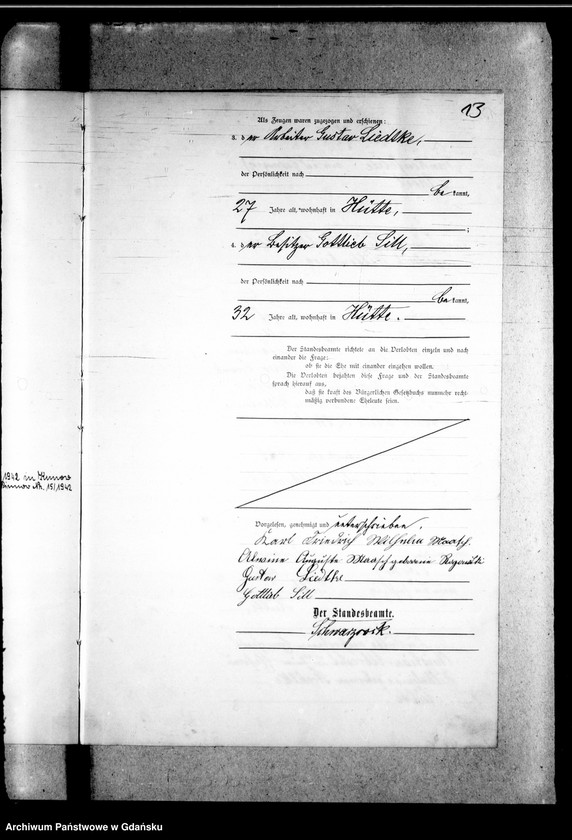 13
Als Zeugen waren zugezogen und erschienen:
3. der Arbeiter Gustav Liedtke,
der Persönlichkeit nach
bekannt,
27 Jahre alt, wohnhaft in Hütte,
;
4. der Besitzer Gottlieb Sill,
der Persönlichkeit nach
bekannt,
32 Jahre alt, wohnhaft in Hütte.
Der Standesbeamte richtete an die Verlobten einzeln und nach
einander die Frage:
ob sie die Ehe mit einander eingehen wollen.
Die Verlobten bejahten diese Frage und der Standesbeamte
sprach hierauf aus,
daß sie kraft des Bürgerlichen Gesetzbuchs nunmehr recht-
mäßig verbundene Eheleute seien.
1942 in
Nr. 15/1942
Vorgelesen, genehmigt und unterschrieben.
Karl Friedrich Wilhelm Maasch.
Alwine Auguste Maasch geborene
Gustav Liedtke
Gottlieb Sill
Der Standesbeamte.
Archiwum Państwowe w Gdańsku